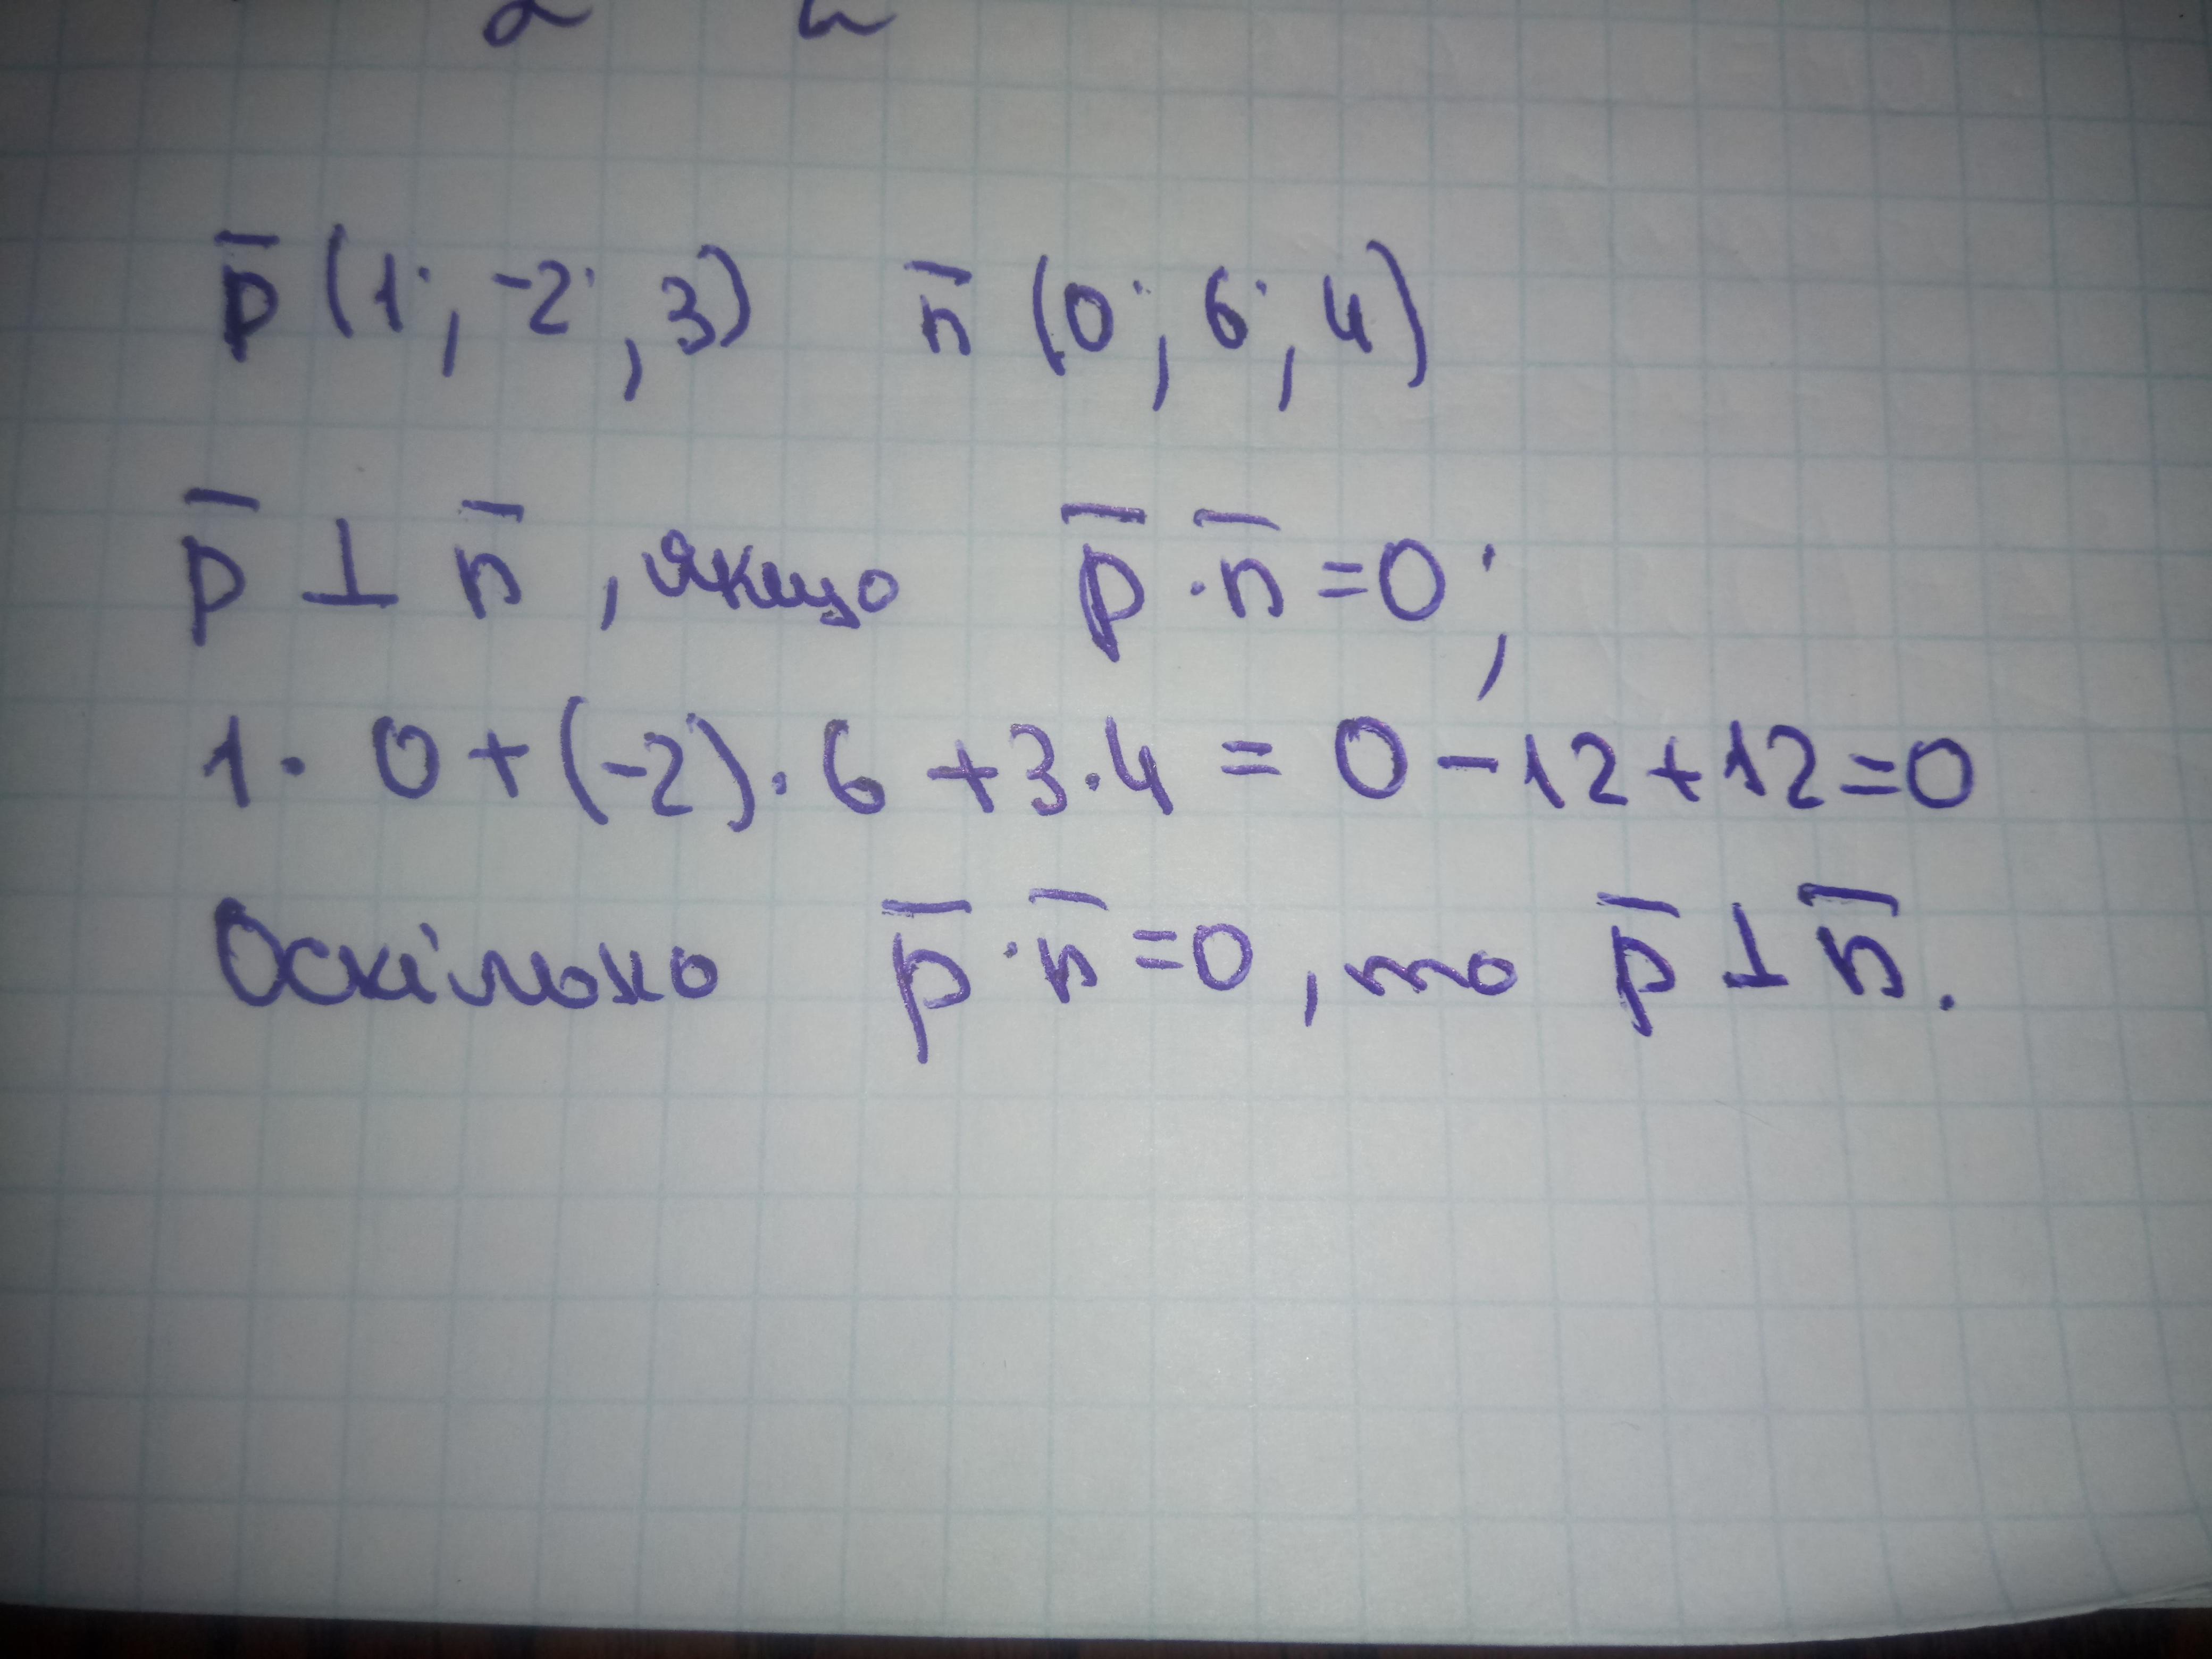 p̅ (1; -2; 3) n̅ (0; 6; 4)
p̅ ⊥ n̅, якщо p̅ · n̅ = 0;
1 · 0 + (-2) · 6 + 3 · 4 = 0 - 12 + 12 = 0
Оскільки p̅ · n̅ = 0, то p̅ ⊥ n̅.